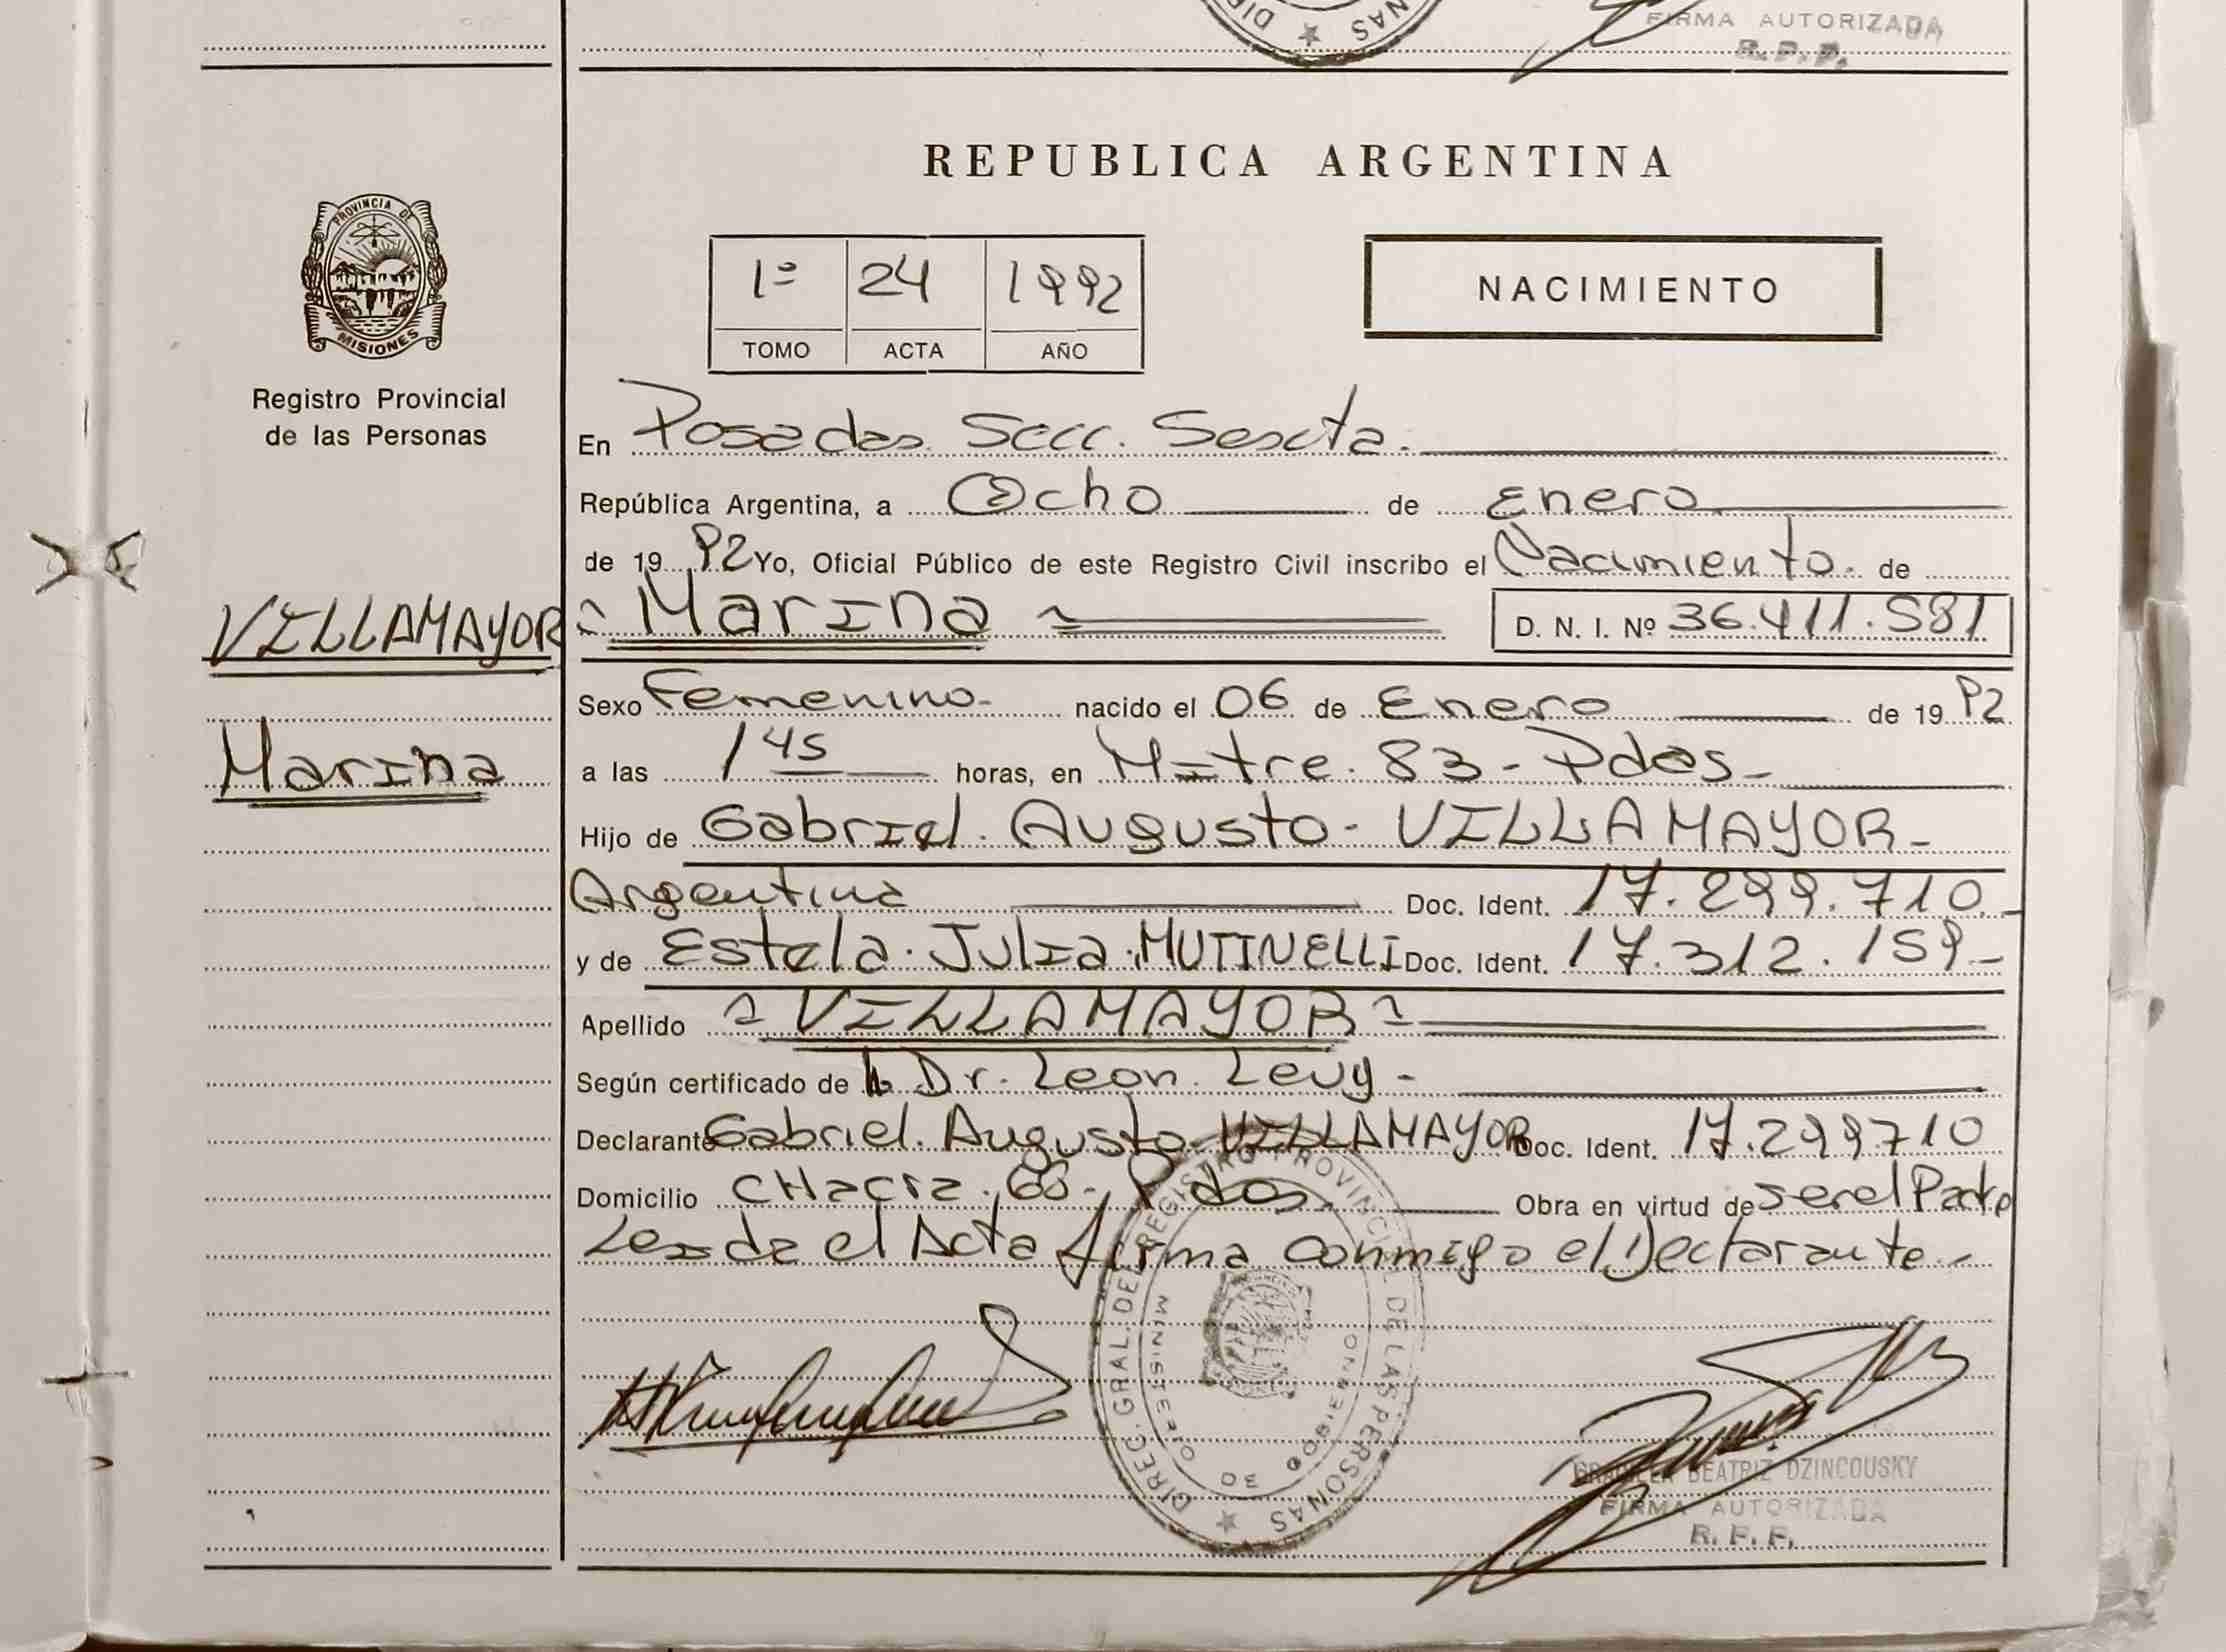 FIRMA AUTORIZADA
R. P. P.
REPUBLICA ARGENTINA
PROVINCIA DE
MISIONES
Registro Provincial
de las Personas
1º 24 1992
TOMO ACTA AÑO
NACIMIENTO
En Posadas. Secc. Sexta.
República Argentina, a Ocho de Enero
de 19 92 Yo, Oficial Público de este Registro Civil inscribo el Nacimiento. de
VILLAMAYOR
Marina
Marina D. N. I. Nº 36.411.581
Sexo Femenino- nacido el 06 de Enero de 19 92
a las 1 45 horas, en Mitre. 83 - Pdas -
Hijo de Gabriel. Augusto - VILLAMAYOR -
Argentina Doc. Ident. 17.299.710.-
y de Estela. Julia. MUTINELLI Doc. Ident. 17.312.159-
Apellido VILLAMAYOR
Según certificado de Dr. Leon. Levy -
Declarante Gabriel. Augusto. VILLAMAYOR Doc. Ident. 17.299710
Domicilio CHacra. Pdas. Obra en virtud de ser el Padre
Leida el Acta firma conmigo el Declarante.-
DIREC. GRAL. DEL REGISTRO PROVINCIAL DE LAS PERSONAS
MINISTERIO DE GOBIERNO
GRACIELA BEATRIZ DZINCOUSKY
FIRMA AUTORIZADA
R. P. P.